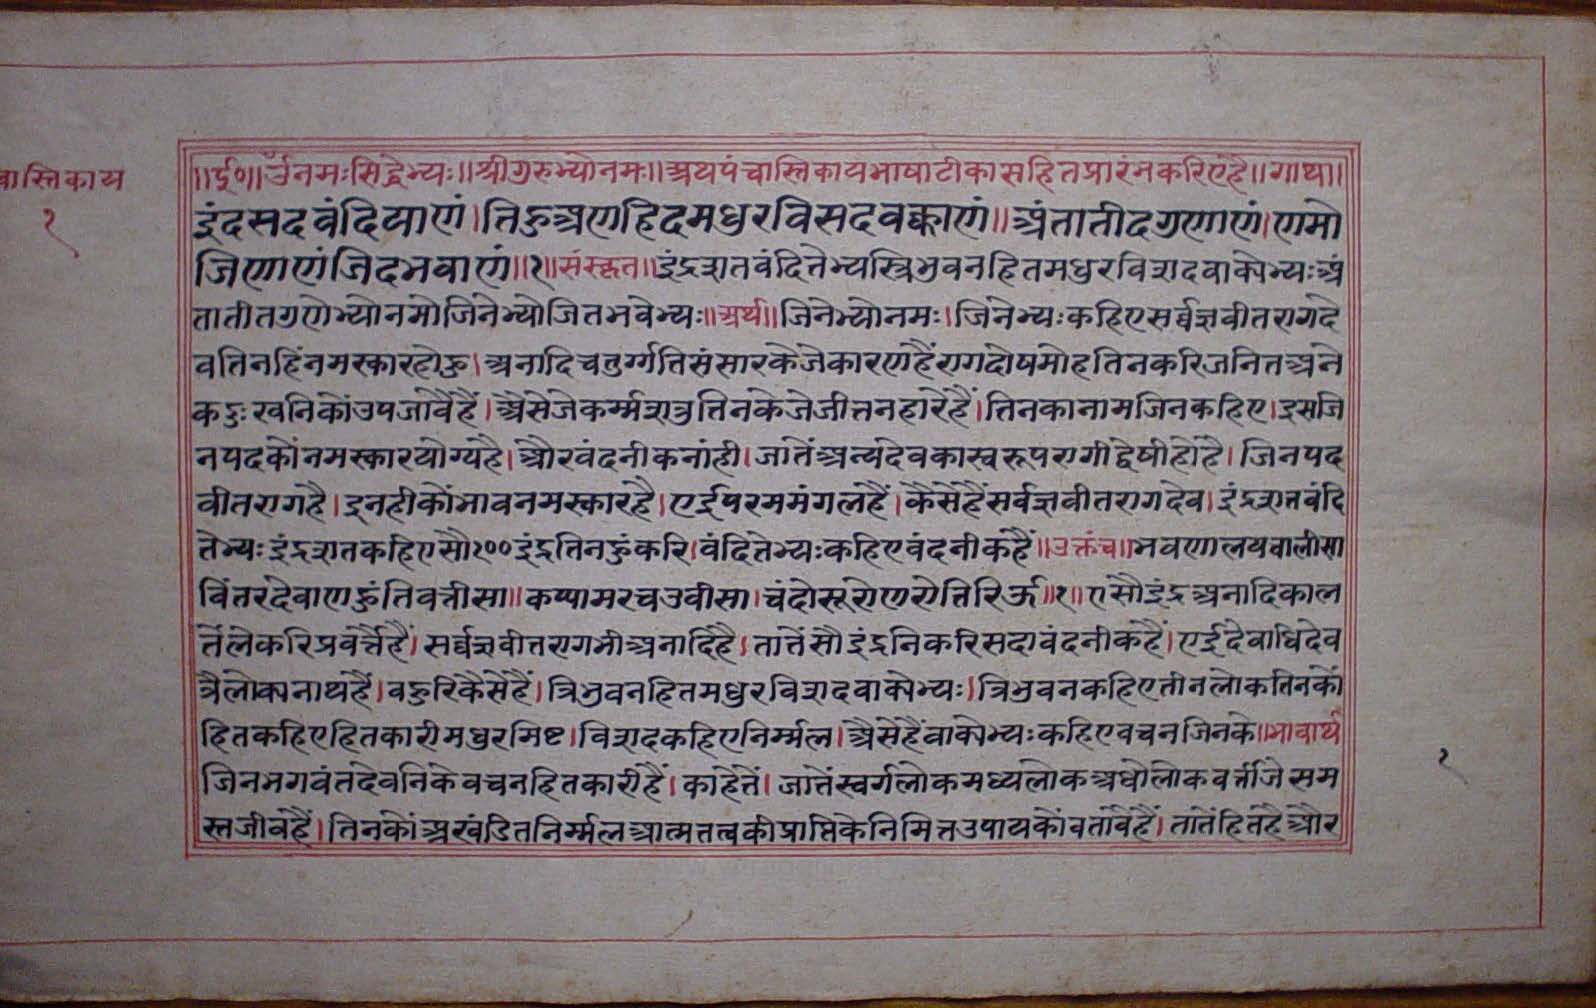 वास्तिकाय
१
॥ई०॥ॐनमःसिद्धेभ्यः॥श्रीगुरुभ्योनमः॥अथपंचास्तिकायभाषाटीकासहितप्रारंभकरिएहै॥गाथा॥
इंदसदवंदियाणं।तिहुअणहिदमधुरविसदवक्काणं॥अंतातीदगुणाणं।णमो
जिणाणंजिदभवाणं॥१॥संस्कृत॥इंद्रशतवंदितेभ्यस्त्रिभुवनहितमधुरविशदवाक्येभ्यःअं
तातीतगुणेभ्योनमोजिनेभ्योजितभवेभ्यः॥अर्थ॥जिनेभ्योनमः।जिनेभ्यःकहिएसर्वज्ञवीतरागदे
वतिनहिंनमस्कारहोऊ।अनादिचतुर्ग्गतिसंसारकेजेकारणहैंरागदोषमोहतिनकरिजनितअने
कदुःखनिकोंउपजावैंहैं।अैसेजेकर्म्मशत्रुतिनकेजेजीतनहारेहैं।तिनकानामजिनकहिए।इसजि
नपदकोंनमस्कारयोग्यहै।औरवंदनीकनांही।जातेंअन्यदेवकास्वरूपरागीद्वेषीहोहै।जिनपद
वीतरागहै।इनहीकोंभावनमस्कारहै।एईपरममंगलहैं।कैसेंहैंसर्वज्ञवीतरागदेव।इंद्रशतवंदि
तेभ्यःइंद्रशतकहिएसौ१००इंद्रतिनहुंकरि।वंदितेभ्यःकहिएवंदनीकहैं॥उक्तंच॥भवणालयचालीसा
विंतरदेवाणहुंतिवत्तीसा॥कप्पामरचउवीसा।चंदोसूरोणरोतिरिऊ॥१॥एसौइंद्रअनादिकाल
तेंलेकरिप्रवर्त्तैहैं।सर्वज्ञवीतरागभीअनादिहै।तातेंसौइंद्रनिकरिसदावंदनीकहैं।एईदेवाधिदेव
त्रैलोक्यनाथहैं।वहुरिकैसेहैं।त्रिभुवनहितमधुरविशदवाक्येभ्यः।त्रिभुवनकहिएतीनलोकतिनकों
हितकहिएहितकारीमधुरमिष्ट।विशदकहिएनिर्म्मल।अैसेहैंवाक्येभ्यःकहिएवचनजिनके॥भावार्थ
जिनभगवंतदेवनिकेवचनहितकारीहैं।काहेतें।जातेंस्वर्गलोकमध्यलोकअधोलोकवर्त्तीजेसम
स्तजीवहैं।तिनकोंअखंडितनिर्म्मलआत्मतत्वकीप्राप्तिकेनिमित्तउपायकोंवतावैहैं।तातेंहितहैऔर
१